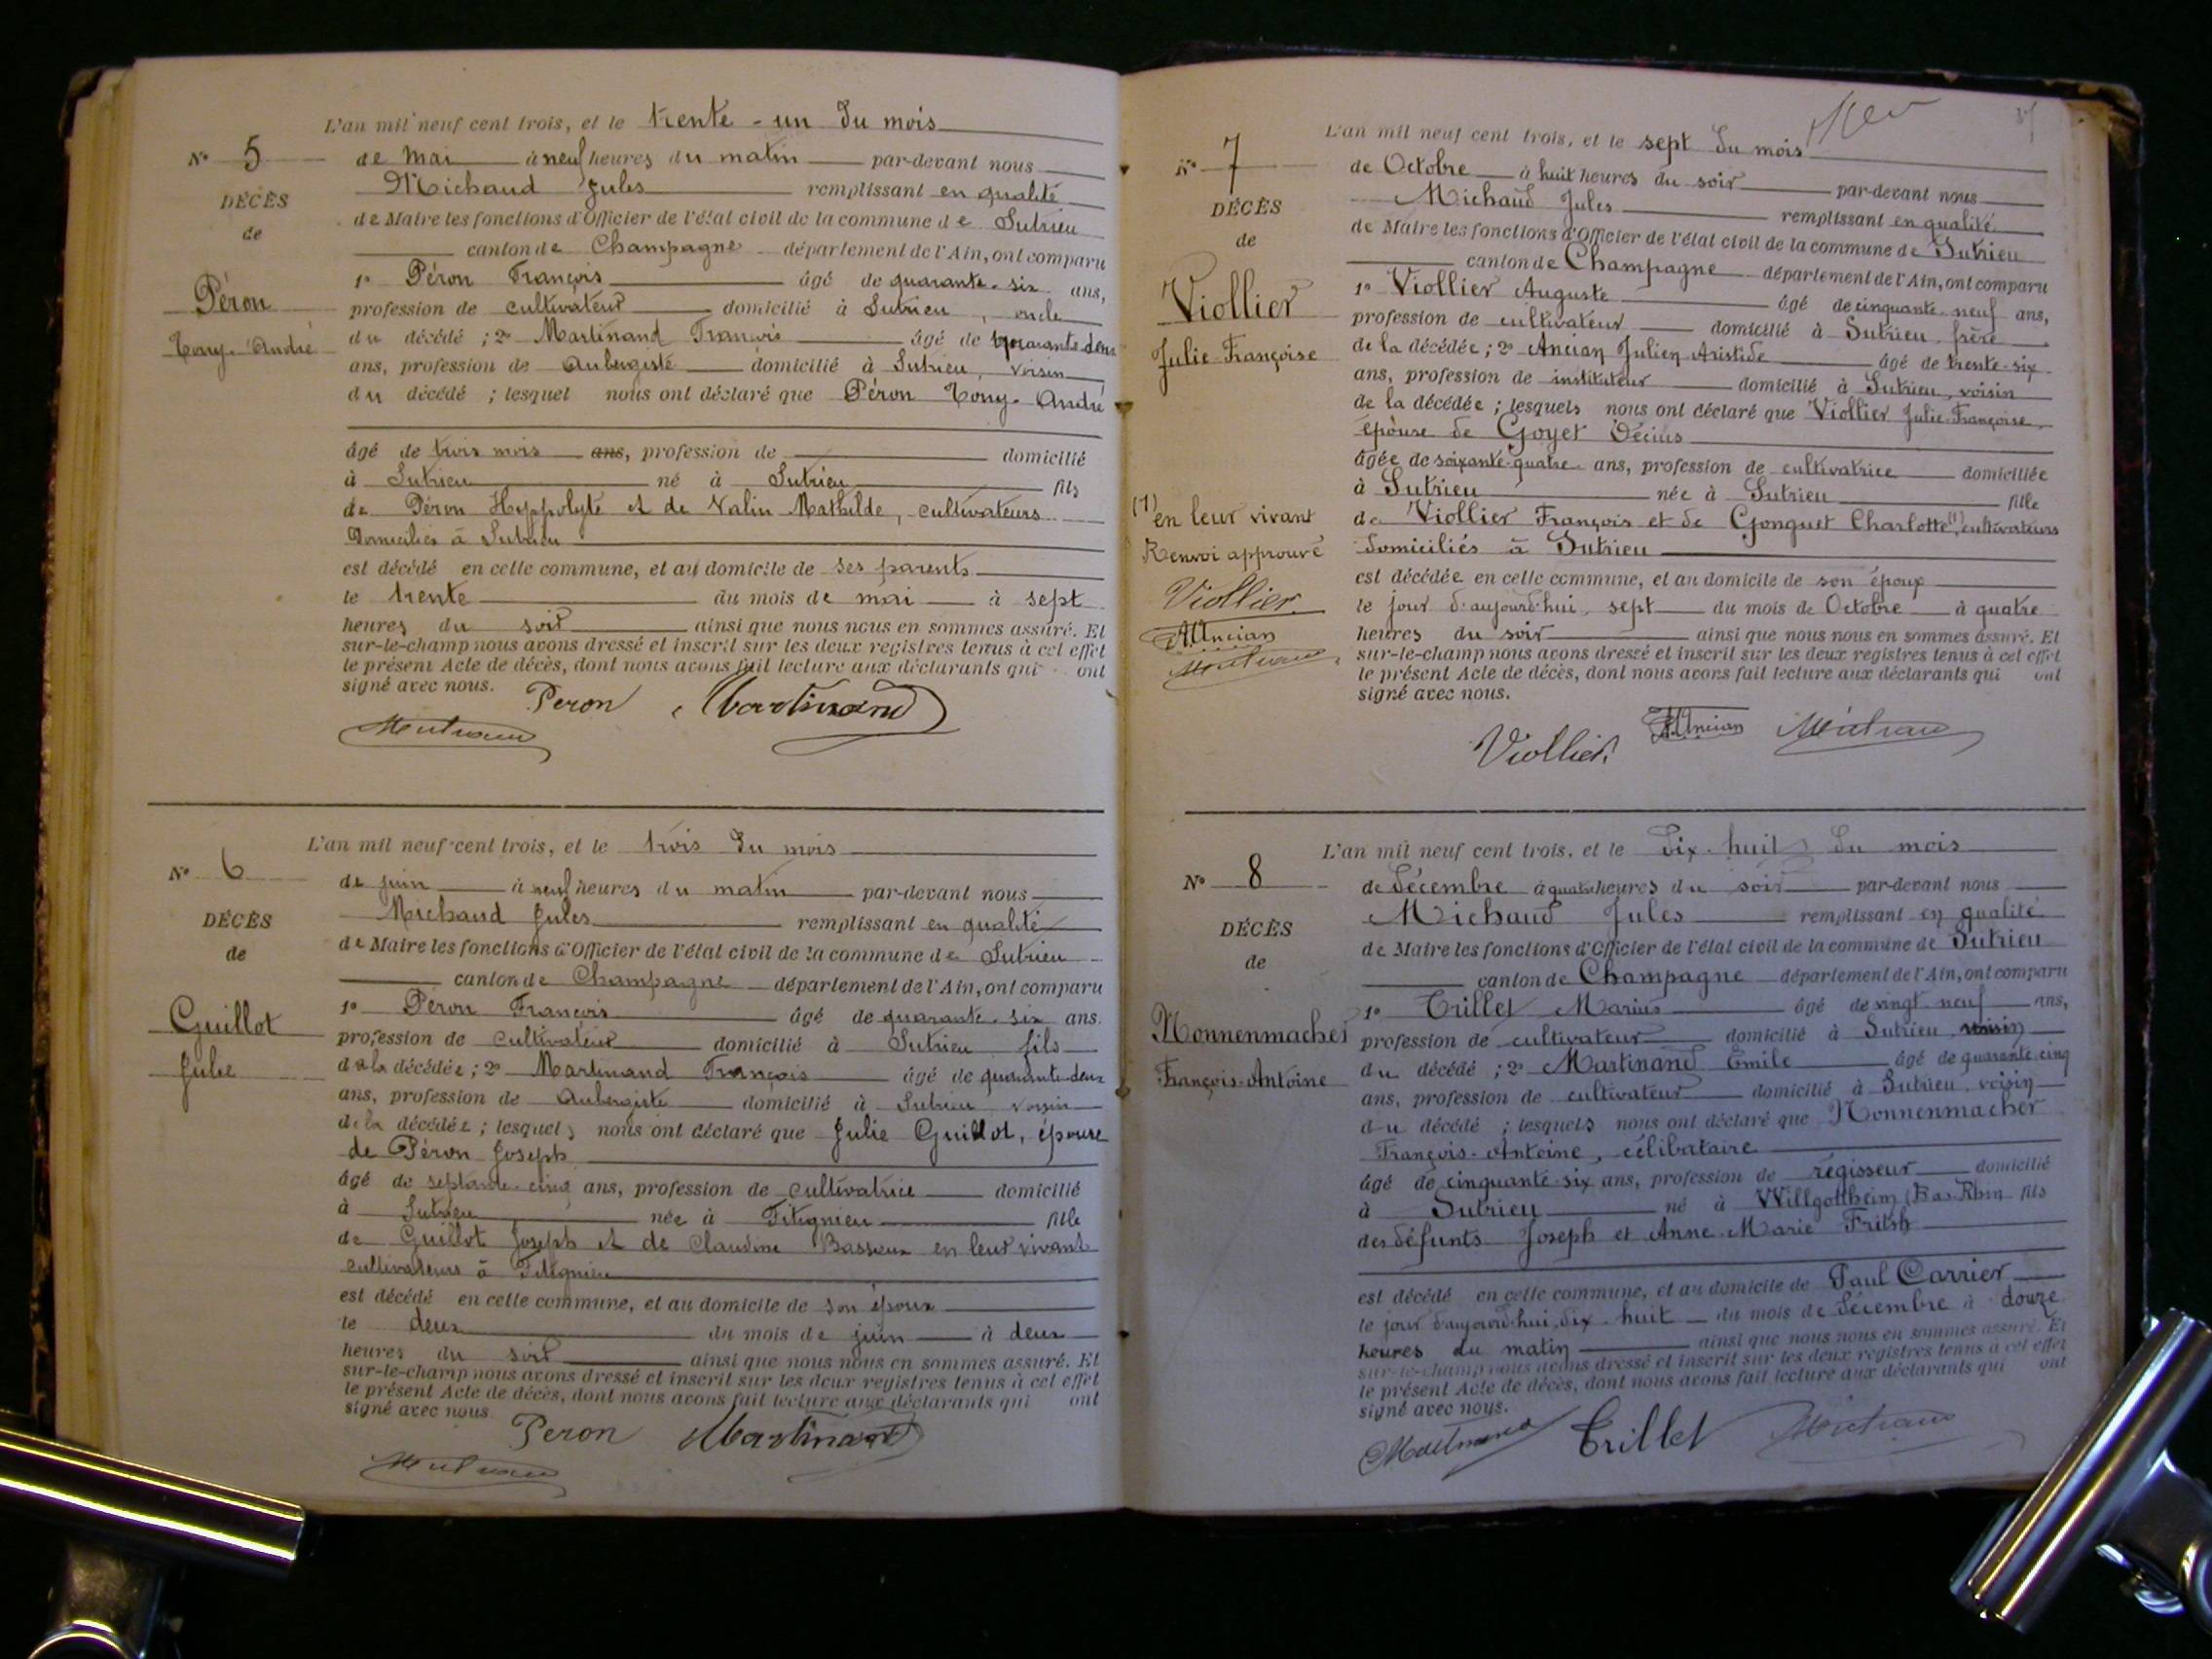 L'an mil neuf cent trois, et le trente-un du mois
N° 5
de mai à neuf heures du matin par-devant nous
Michaud Jules remplissant en qualité
DÉCÈS
de Maire les fonctions d'Officier de l'état civil de la commune de Sutrieu
de
canton de Champagne département de l'Ain, ont comparu
1° Péron François âgé de quarante-six ans,
Péron
profession de cultivateur domicilié à Sutrieu, oncle
Tony-André
du décédé ; 2° Martinand François âgé de quarante-deux
ans, profession de Aubergiste domicilié à Sutrieu, voisin
du décédé ; lesquel nous ont déclaré que Péron Tony-André
âgé de trois mois ans, profession de domicilié
à Sutrieu né à Sutrieu fils
de Péron Hippolyte et de Valin Mathilde, cultivateurs
domiciliés à Sutrieu
est décédé en cette commune, et au domicile de ses parents
le trente du mois de mai à sept
heures du soir ainsi que nous nous en sommes assuré. Et
sur-le-champ nous avons dressé et inscrit sur les deux registres tenus à cet effet
le présent Acte de décès, dont nous avons fait lecture aux déclarants qui ont
signé avec nous.
Peron Martinand
L'an mil neuf cent trois, et le trois du mois
N° 6
de juin à neuf heures du matin par-devant nous
Michaud Jules remplissant en qualité
DÉCÈS
de Maire les fonctions d'Officier de l'état civil de la commune de Sutrieu
de
canton de Champagne département de l'Ain, ont comparu
1° Péron François âgé de quarante-six ans.
Guillot
profession de cultivateur domicilié à Sutrieu fils
Julie
de la décédée ; 2° Martinand François âgé de quarante-deux
ans, profession de Aubergiste domicilié à Sutrieu voisin
de la décédée ; lesquels nous ont déclaré que Julie Guillot, épouse
de Péron Joseph
âgé de septante-cinq ans, profession de cultivatrice domicilié
à Sutrieu née à Fitignieu fille
de Guillot Joseph et de Claudine en leur vivant
cultivateurs à Fitignieu
est décédé en cette commune, et au domicile de son époux
le deux du mois de juin à deux
heures du soir ainsi que nous nous en sommes assuré. Et
sur-le-champ nous avons dressé et inscrit sur les deux registres tenus à cet effet
le présent Acte de décès, dont nous avons fait lecture aux déclarants qui ont
signé avec nous
Peron Martinand
L'an mil neuf cent trois, et le sept du mois
N° 7
de Octobre à huit heures du soir par-devant nous
Michaud Jules remplissant en qualité
DÉCÈS
de Maire les fonctions d'Officier de l'état civil de la commune de Sutrieu
de
canton de Champagne département de l'Ain, ont comparu
Viollier
1° Viollier Auguste âgé de cinquante-neuf ans,
profession de cultivateur domicilié à Sutrieu, frère
Julie-Françoise
de la décédée ; 2° Ancian Julien Aristide âgé de trente-six
ans, profession de instituteur domicilié à Sutrieu, voisin
de la décédée ; lesquels nous ont déclaré que Viollier Julie-Françoise,
épouse de Goyet Décius
âgée de soixante-quatre ans, profession de cultivatrice domiciliée
à Sutrieu née à Sutrieu fille
(1) en leur vivant
de Viollier François et de Gonguet Charlotte (1), cultivateurs
Renvoi approuvé
domiciliés à Sutrieu
est décédée en cette commune, et au domicile de son époux
Viollier
le jour d'aujourd'hui, sept du mois de Octobre à quatre
Ancian
heures du soir ainsi que nous nous en sommes assuré. Et
sur-le-champ nous avons dressé et inscrit sur les deux registres tenus à cet effet
le présent Acte de décès, dont nous avons fait lecture aux déclarants qui ont
signé avec nous.
Viollier Ancian
L'an mil neuf cent trois, et le dix-huit du mois
N° 8
de Décembre à quatre heures du soir par-devant nous
Michaud Jules remplissant en qualité
DÉCÈS
de Maire les fonctions d'Officier de l'état civil de la commune de Sutrieu
de
canton de Champagne département de l'Ain, ont comparu
1° Trillet Marius âgé de vingt-neuf ans,
Nonnenmacher
profession de cultivateur domicilié à Sutrieu, voisin
François-Antoine
du décédé ; 2° Martinand Emile âgé de quarante-cinq
ans, profession de cultivateur domicilié à Sutrieu, voisin
du décédé ; lesquels nous ont déclaré que Nonnenmacher
François-Antoine, célibataire
âgé de cinquante-six ans, profession de régisseur domicilié
à Sutrieu né à Willgottheim, Bas-Rhin fils
des défunts Joseph et Anne-Marie Fritsh
est décédé en cette commune, et au domicile de Paul Carrier
le jour d'aujourd'hui, dix-huit du mois de Décembre à douze
heures du matin ainsi que nous nous en sommes assuré. Et
sur-le-champ nous avons dressé et inscrit sur les deux registres tenus à cet effet
le présent Acte de décès, dont nous avons fait lecture aux déclarants qui ont
signé avec nous.
Martinand Trillet